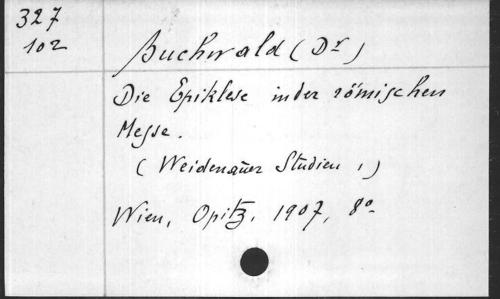 327
102
Buchwald (Dr)
Die Epiklese in der römischen
Messe.
(Weidenauer Studien 1)
Wien, Opitz, 1907, 8º